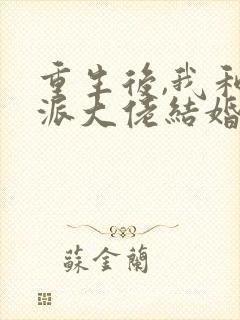 重生後,我和
派大佬結婚
蘇金蘭